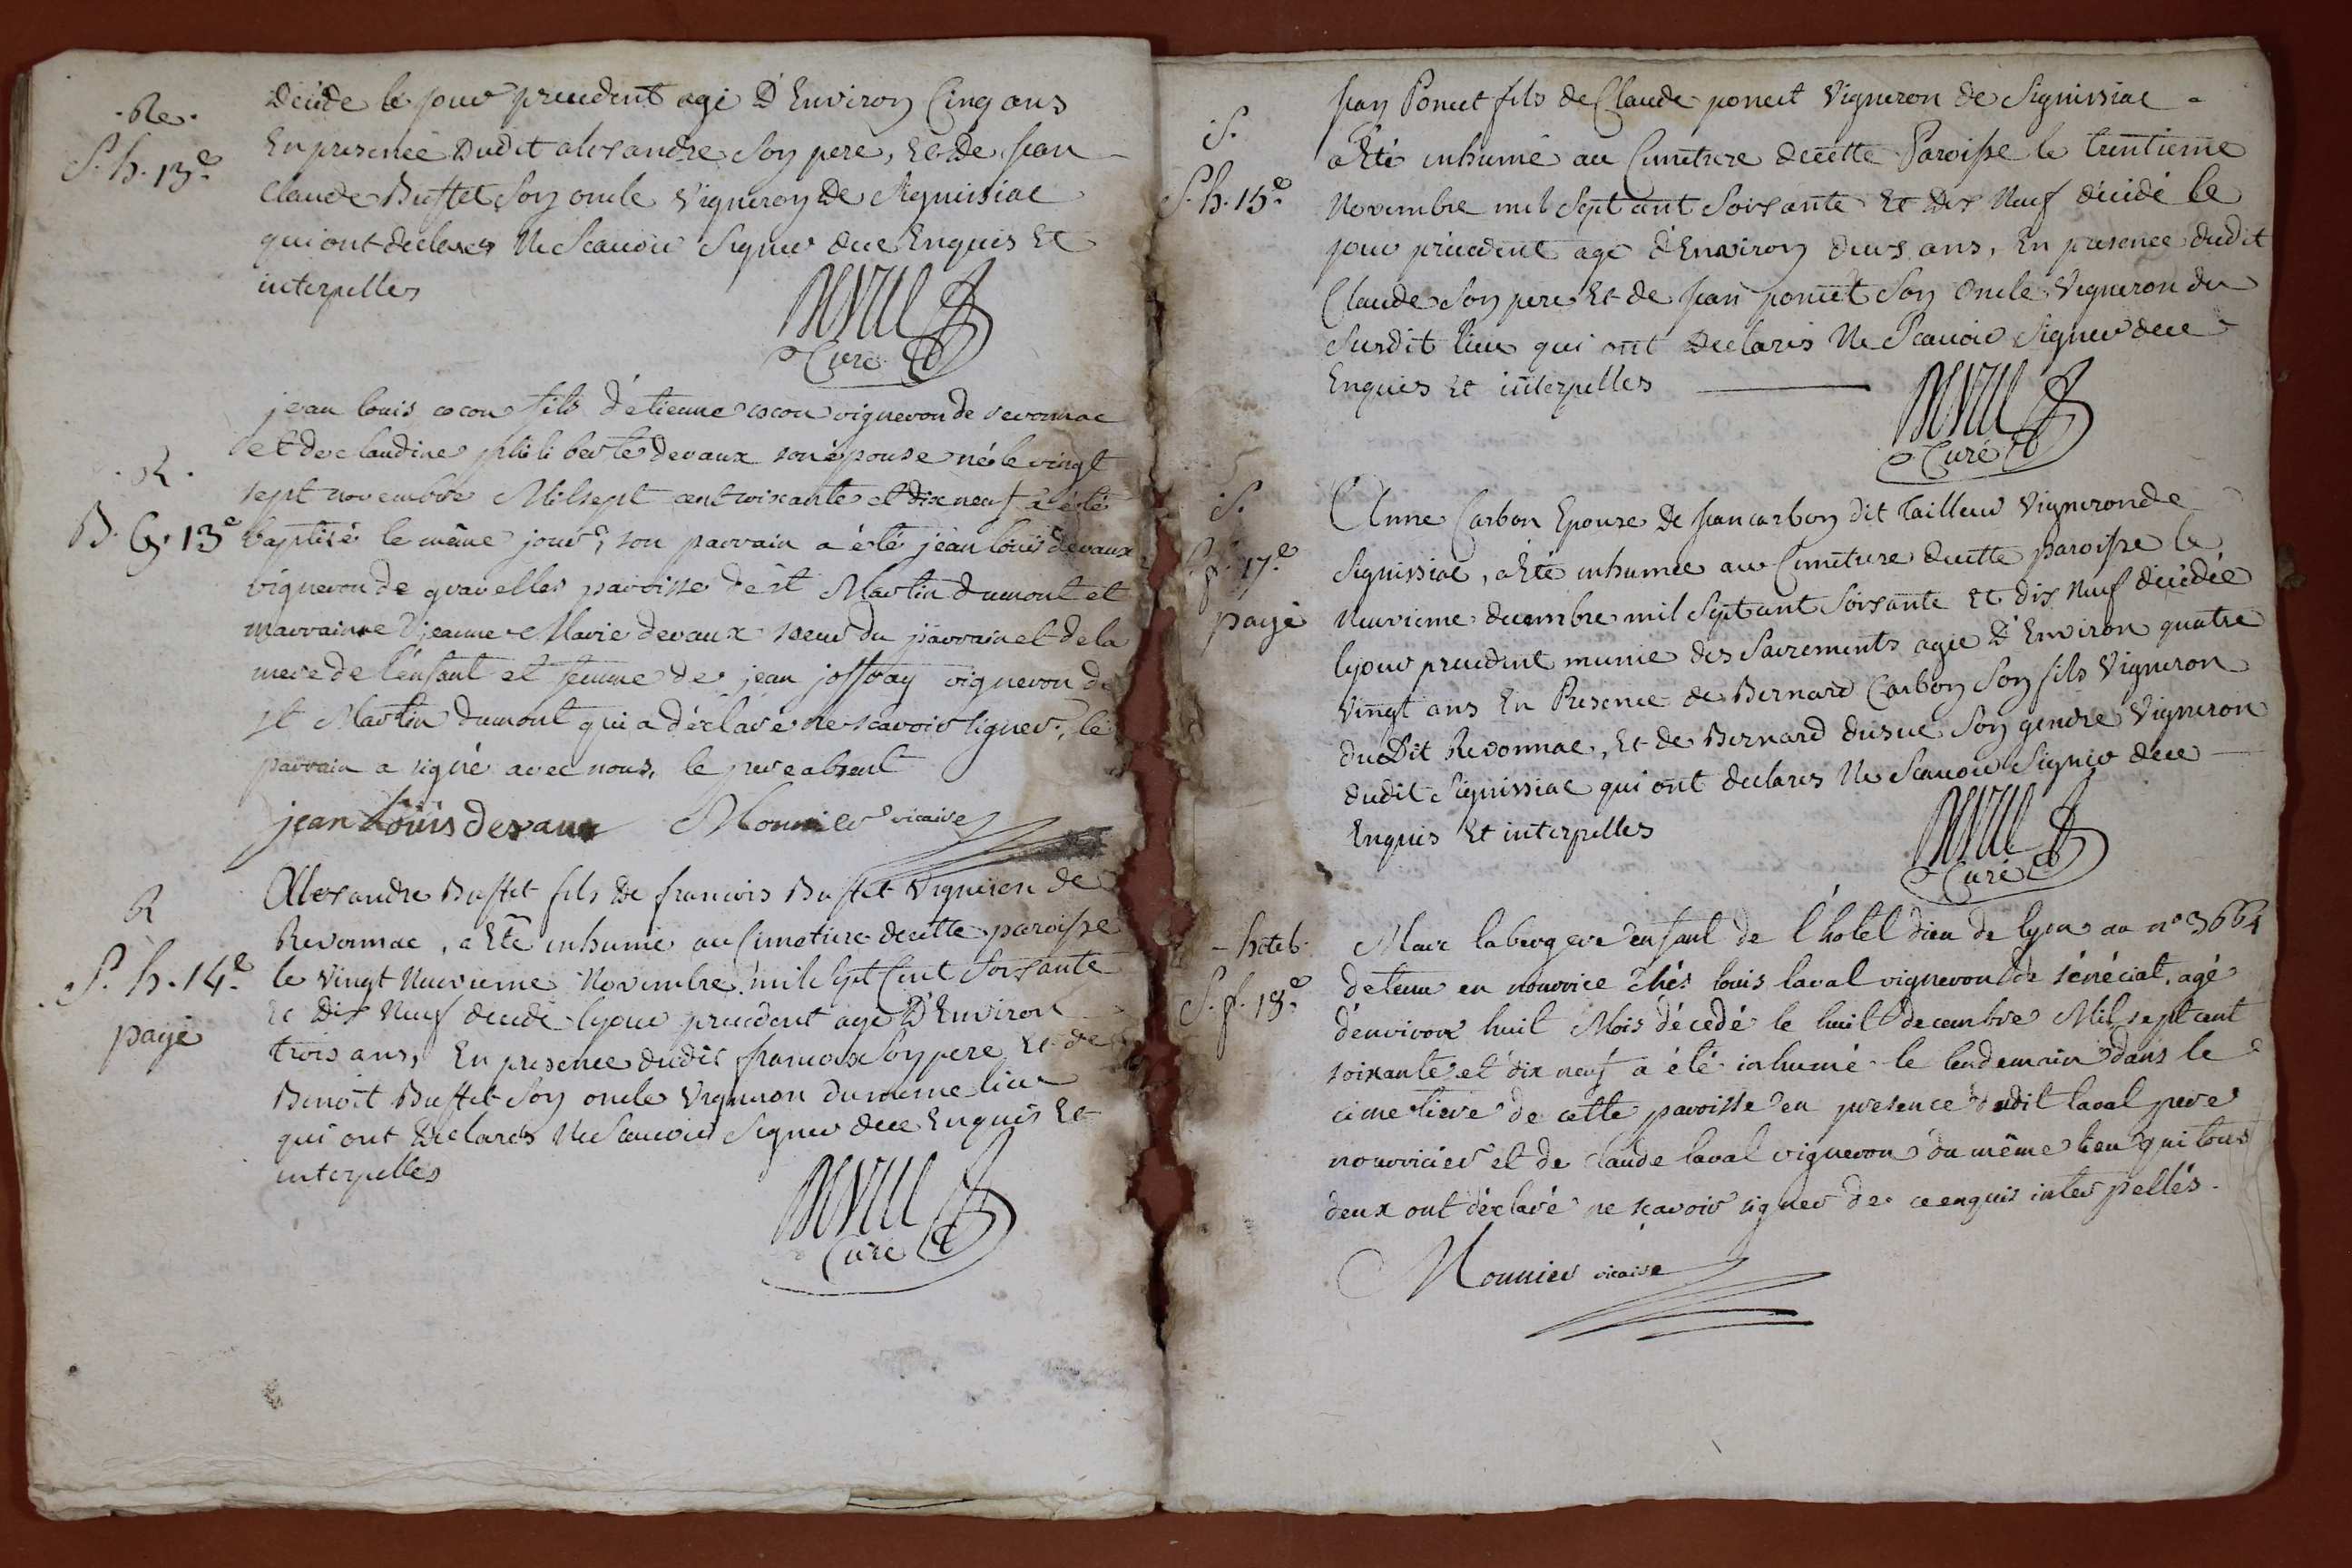 . Re .
S. h. 13e
décédé le jour precedent agé D'Environ Cinq ans
En presence Dudit alexandre Son pere, Et De jean
Claude Buffet Son oncle Vigneron De Signissiat
qui ont declares Ne Scauoir Signer dece Enquis Et
interpelles
Curé
. R .
B. G. 13e
jean louis cocon fils d'etienne cocon vigneron de revonnac
et de claudine philiberte devaux son épouse né le vingt
sept novembre Mil sept cent soixante et dix neuf a été
baptisé le même jour, son parrain a été jean louis devaux
vigneron de gravelles paroisse de st Martin dumont et
marrainne jeanne Marie devaux soeur du parrain et de la
mere de l'enfant et femme de jean joffray vigneron de
st Martin dumont qui a déclaré ne scavoir signer, le
parrain a signé avec nous, le pere absent
jean Louis devaux Monnier vicaire
R
S. h. 14e
payé
Alexandre Buffet fils De francois Buffet Vigneron de
Revonnac, a Eté inhumé au Cimetiere decette paroisse
le Vingt Neuvieme Novembre mil Sept Cent Soixante
Et Dix Neuf décédé lejour precedent agé D'Environ
trois ans, En presence dudit francois Son pere Et de
Benoît Buffet Son oncle Vigneron du meme lieu
qui ont Declarés Ne Scauoir Signer dece Enquis Et
interpellés
Curé
S.
S. h. 15e
jean Poncet fils de Claude poncet Vigneron de Signissiat
a Eté inhumé au Cimetiere decette Paroisse le trentieme
Novembre mil Sept cent Soixante Et Dix Neuf décédé le
jour précedent agé d'Environ deux ans, En presence dudit
Claude Son pere Et de jean poncet Son Oncle Vigneron du
Susdit lieu qui ont Declares Ne Scauoir Signer dece
Enquis Et interpelles
Curé
S.
S. f. 17e
payé
Anne Carbon Epouse De jean carbon dit tailleur Vigneron de
Signissiat, a Eté inhumée au Cimetiere decette paroisse le
Neuvieme decembre mil Sept cent Soixante Et dix Neuf décédée
lejour precedent munie des Sacrements agée D'Environ quatre
Vingt ans En Presence de Bernard Carbon Son fils Vigneron
du Dit Revonnac, Et de Bernard Son gendre Vigneron
dudit Signissiat qui ont declares Ne Scauoir Signer dece
Enquis Et interpelles
Curé
- hotel
S. f. 18e
Marc labergere enfant de l'hotel dieu de lyon au n° 3664
detenu en nourrice chés louis laval vigneron de sénéciat, agé
d'environ huit Mois décedé le huit decembre Mil sept cent
soixante et dix neuf a été inhumé le lendemain dans le
cimetiere de cette paroisse en presence dudit laval pere
nourricier et de claude laval vigneron du même lieu qui tous
deux ont déclaré ne scavoir signer de ce enquis interpellés.
Monnier vicaire